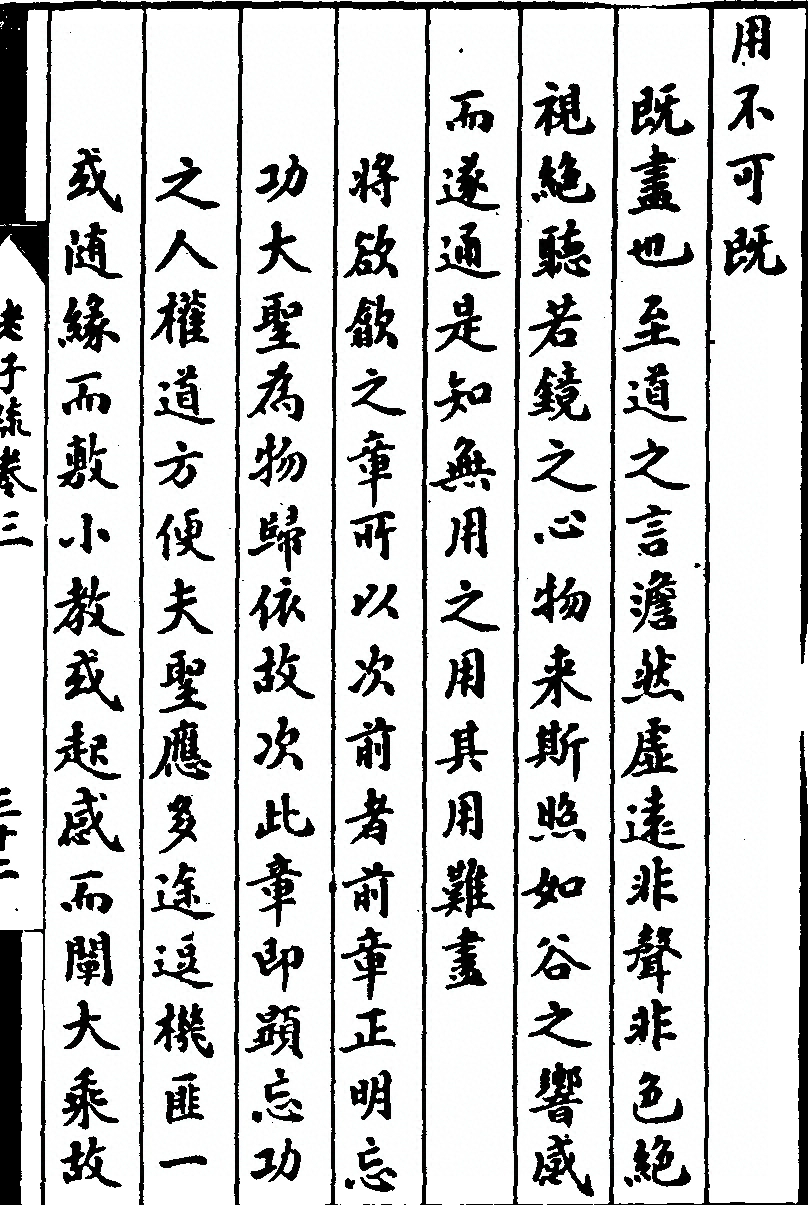 用不可既
既盡也至道之言澹然虛遠非聲非色絕
視絕聽若鏡之心物来斯照如谷之響感
而遂通是知無用之用其用難盡
將欲歙之章所以次前者前章正明忘
功大聖為物歸依故次此章即顯忘功
之人權道方便夫聖應多途逗機匪一
或随緣而敷小教或起感而闡大乘故
老子疏卷三
三十二